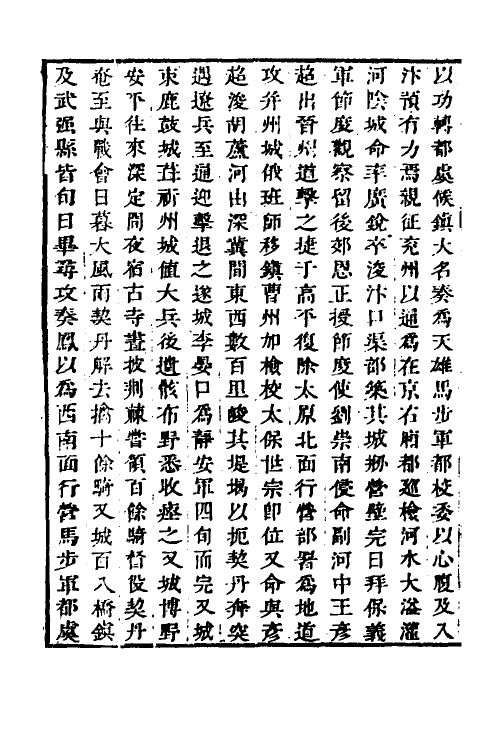 以功轉都虞候鎮大名奏為天雄馬步軍都校委以心腹及入
汴預有力焉親征兖州以通為在京右廂都巡檢河水大溢灌
河陰城命率廣銳卒浚汴口渠部築其城捌營壁完日拜保義
軍節度觀察留後郊恩正授節度使劉崇南侵命副河中王彥
超出晉州道擊之捷于高平復除太原北面行營部署為地道
攻并州城俄班師移鎮曹州加檢校太保世宗即位又命與彥
超浚胡蘆河出深冀間東西數百里峻其堤堨以扼契丹奔突
遇遼兵至通迎擊退之遂城李晏口為靜安軍四旬而完又城
束鹿鼓城葺祈州城值大兵後遺骸布野悉收瘞之又城博野
安平往來深定間夜宿古寺晝披荆棘嘗領百餘騎督役契丹
奄至與戰會日暮大風雨契丹解去擒十餘騎又城百八橋鎮
及武强縣皆旬日畢尋攻秦鳳以為西南面行營馬步軍都虞